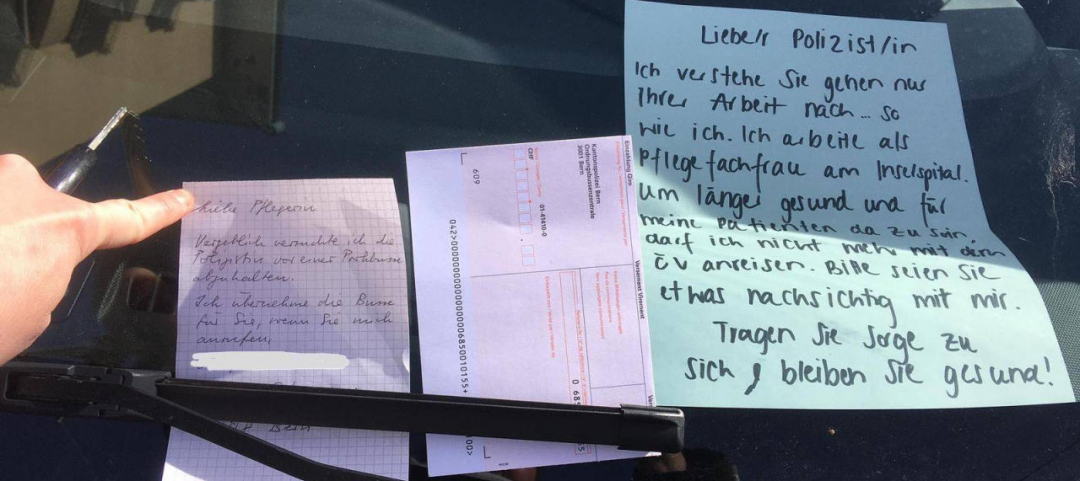 Liebe Pflegerin
Vergeblich versuchte ich die
Polizistin vor einer Parkbusse
abzuhalten.
Ich übernehme die Busse
für Sie, wenn Sie mich
anrufen,
Bern
Einzahlung Giro
Versement Virement
Kantonspolizei Bern
Ordnungsbussenzentrale
3001 Bern
01-41410-0
CHF
609
Liebe/r Polizist/in
Ich verstehe Sie gehen nur
Ihrer Arbeit nach... so
wie ich. Ich arbeite als
Pflegefachfrau am Inselspital.
Um länger gesund und für
meine Patienten da zu sein,
darf ich nicht mehr mit dem
ÖV anreisen. Bitte seien Sie
etwas nachsichtig mit mir.
Tragen Sie Sorge zu
sich, bleiben Sie gesund!